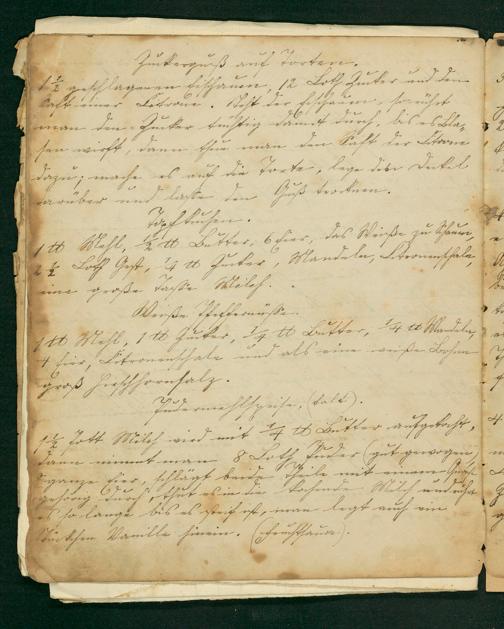 Zuckerguß auf Torten.
1½ geschlagenen Eischaum, 12 Loth Zucker und den
Saft einer Citrone. Ist der Eischaum, so rührt
man den Zucker tüchtig damit durch, bis es Bla-
sen wirft, dann thu man den Saft der Citrone
dazu; mache es auf die Torte, lege den Deckel
darüber und lasse den Guß trocknen.
Topfkuchen.
1 ℔ Mehl, ½ ℔ Butter, 6 Eier, das Weiße zu Schaum,
2½ Loth Gest, ¼ ℔ Zucker, Mandeln, Citronenschale,
eine große Tasse Milch.
Weiße Pfeffernüsse.
1 ℔ Mehl, 1 ℔ Zucker, ¼ ℔ Butter, ¼ ℔ Mandeln,
4 Eier, Citronenschale und als eine weiße Bohne
groß Hirschhornsalz.
Pudermehlspeise, (kalt).
1½ Pott Milch wird mit ¼ ℔ Butter aufgekocht,
dann nimmt man 8 Loth Puder (gut gewogen,
ganze Eier, schlägt beide Theile mit einem
gehörig durch, thut es in die kochende Milch und rührt
es so lange bis es steif ist, man legt auch ein
Stückchen Vanille hinein. (Fruchtsauce).